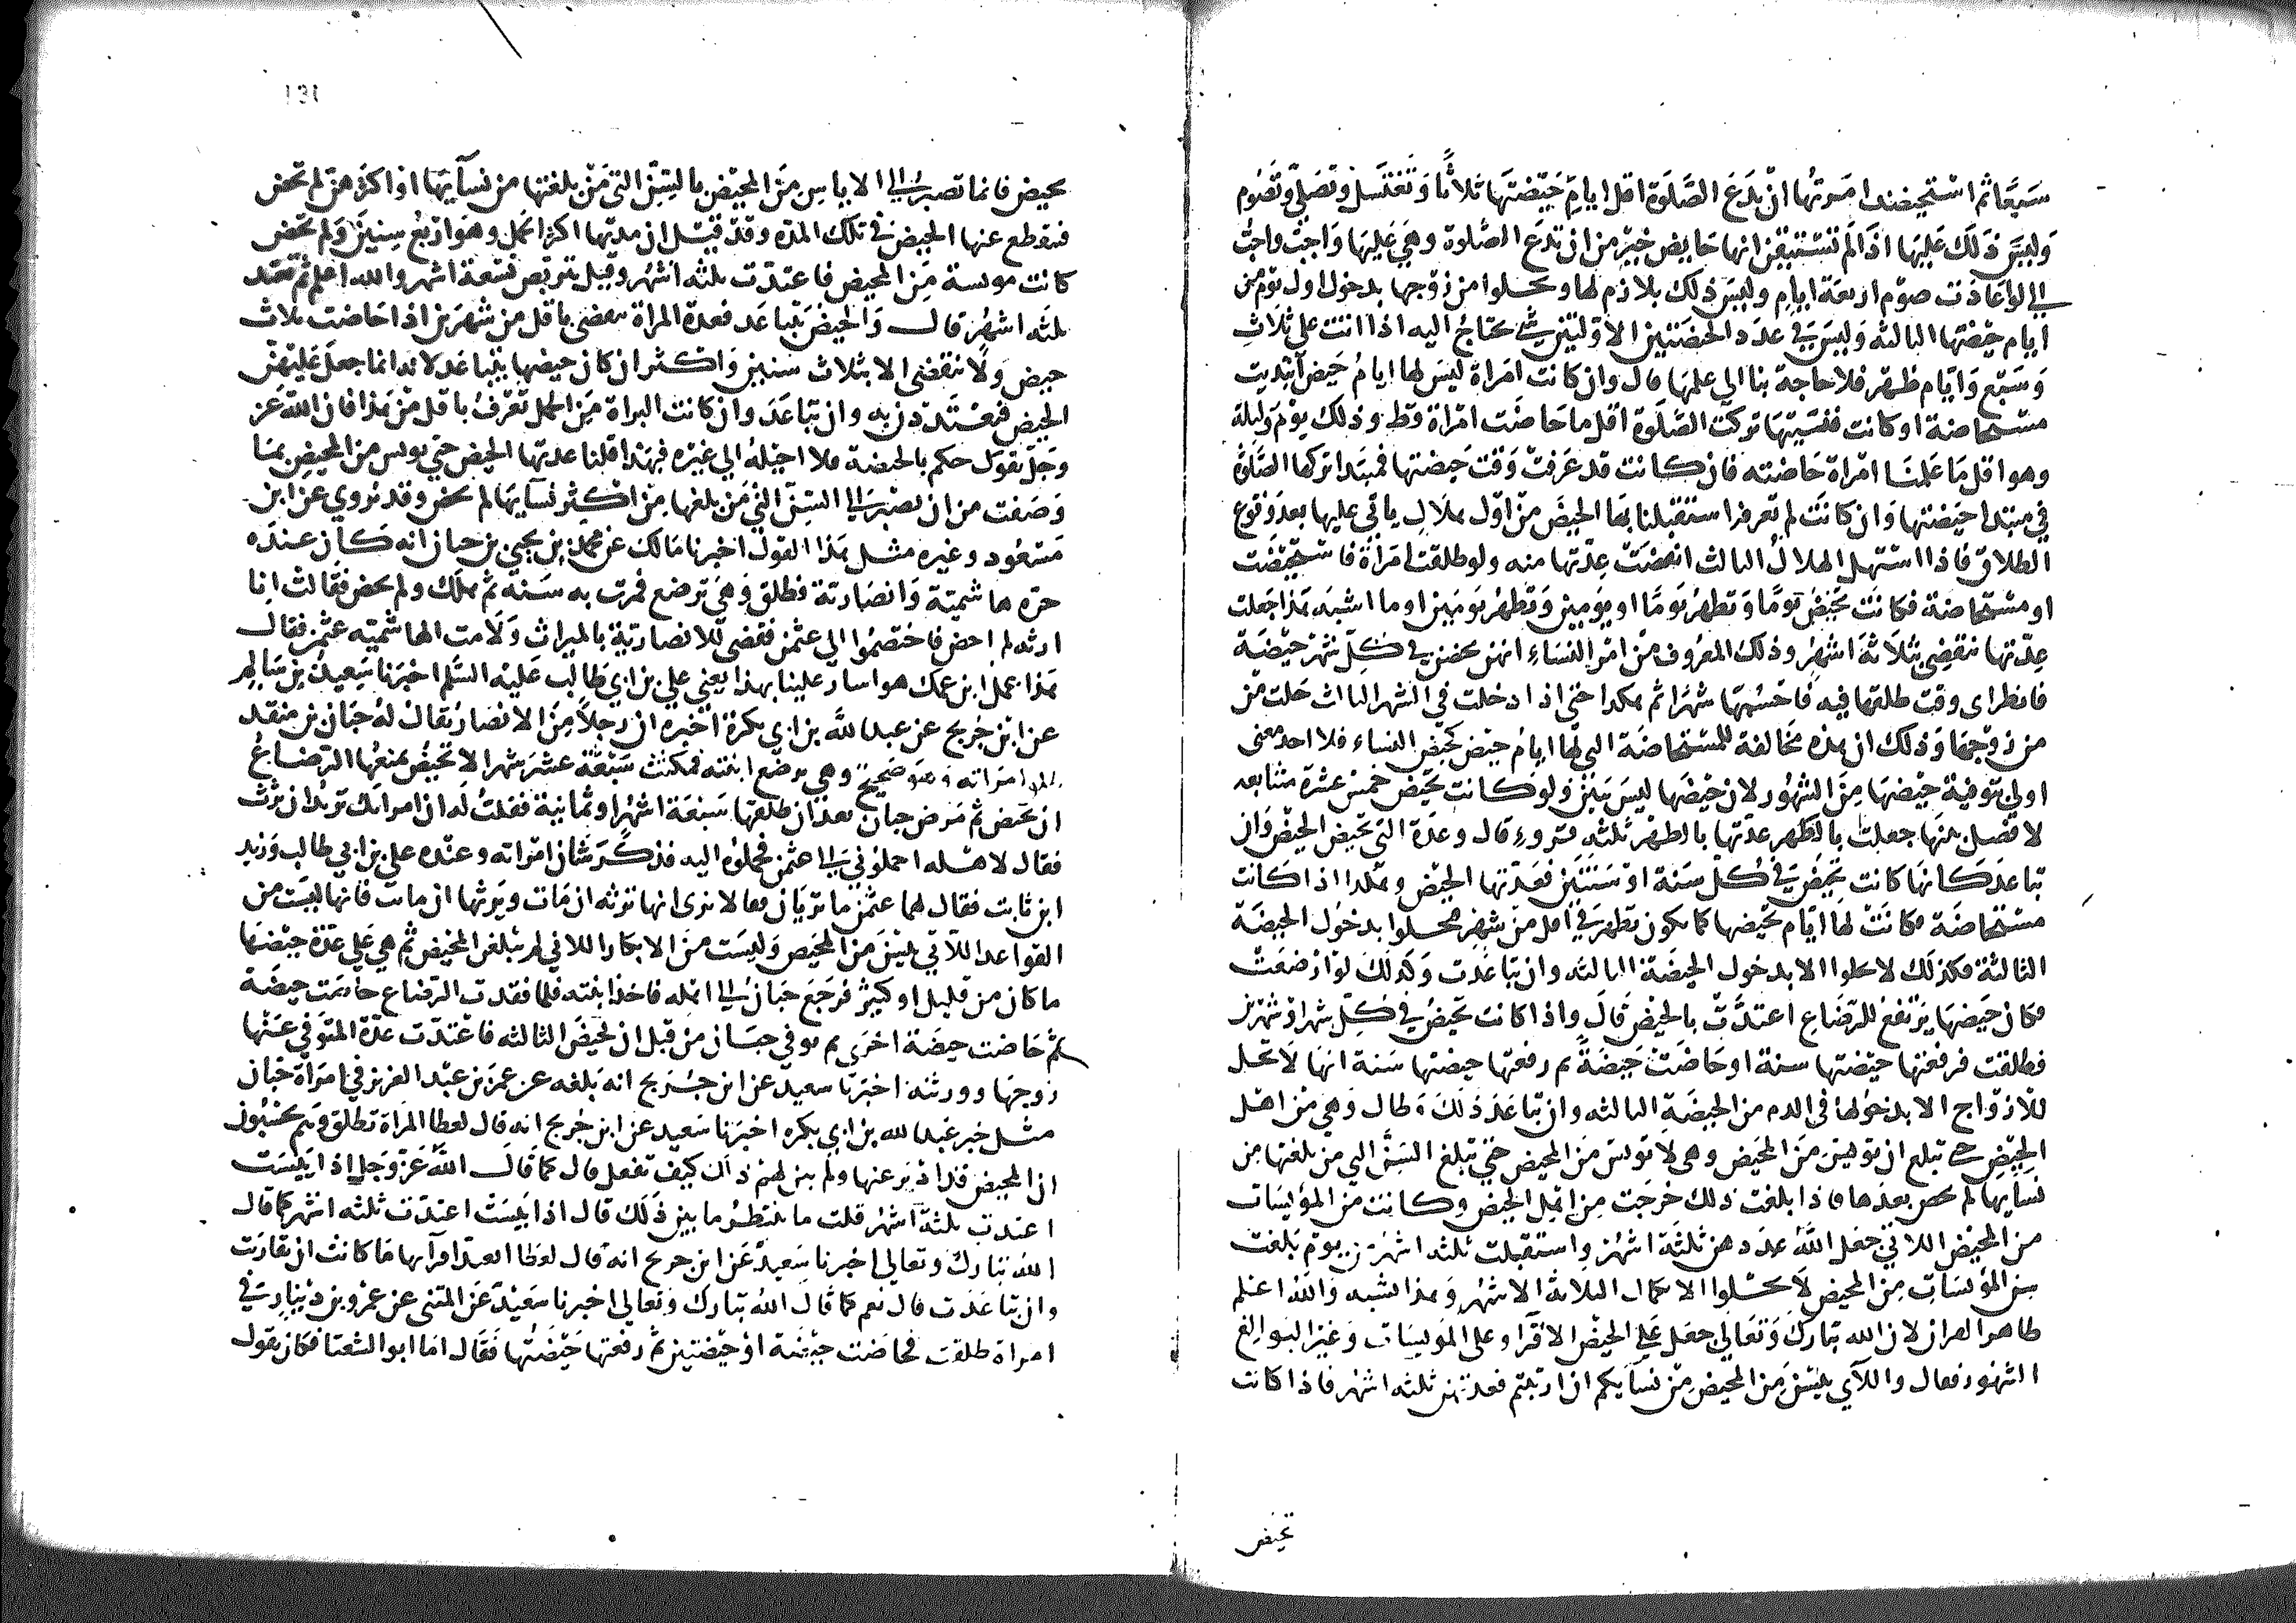 سبعا ثم استحيضت امرتها ان تدع الصلوة اقل ايام حيضتها ثلاثا وتغتسل وتصلي وتصوم
وليس ذلك عليها اذا لم تستيقن انها حايض خير من ان تدع الصلوة وهي عليها واجب واجب
الي لو اعادت صوم اربعة ايام وليس ذلك بلازم لها وتحلوا من زوجها بدخول اول يوم من
ايام حيضتها الثالثه وليس في عدد الحيضتين الاولتين شي تحتاج اليه اذا اتت على ثلاث
وسبع وايام طهر فلا حاجة بنا الي علمها قال وان كانت امراة ليس لها ايام حيض ابتديت
مستحاضة او كانت فنسيتها تركت الصلوة اقل ما حاضت امراة قط وذلك يوم وليلة
وهو اقل ما علمنا امراة حاضته فان كانت قد عرفت وقت حيضتها فمبتدا تركها الصلوة
في مبتدا حيضتها وان كانت لم تعرفه استقبلنا بها الحيض من اول هلال ياتي عليها بعد وقوع
الطلاق فاذا استهل الهلال الثالث انقضت عدتها منه ولو طلقت امراة فاستحيضت
او مستحاضة فكانت تحيض يوما وتطهر يوما او يومين وتطهر يومين او ما اشبه هذا جعلت
عدتها تنقضي بثلاثة اشهر وذلك المعروف من امر النساء انهن يحضن في كل شهر حيضة
فانظر اي وقت طلقها فيه فاحسبها شهرا ثم هكذا حتى اذا دخلت في الشهر الثالث حلت من
زوجها وذلك ان هذه مخالفة للمستحاضة التي لها ايام حيض كحيض النساء فلا اجد معنى
اولي بتوقية حيضها من الشهور لان حيضها ليس ببين ولو كانت تحيض خمس عشرة متتابعه
لا فصل بينها جعلت بالطهر عدتها بالطهر ثلثه قروء قال وعدة التي تحيض الحيض وان
تباعد كانها كانت تحيض في كل سنة او سنتين فعدتها الحيض وهكذا اذا كانت
مستحاضة فكانت لها ايام تحيضها كما يكون تطهر في اقل من شهر فتحلوا بدخول الحيضة
الثالثة فكذلك لا تحلوا الا بدخول الحيضة الثالثه وان تباعدت وكذلك لو ارضعت
فكان حيضها يرتفع للرضاع اعتدت بالحيض قال واذا كانت تحيض في كل شهر او شهرين
فطلقت فرفعتها حيضتها سنة او حاضت حيضة ثم رفعتها حيضتها سنة انها لا تحل
للازواج الا بدخولها في الدم من الحيضة الثالثه وان تباعد ذلك وطال وهي من اهل
الحيض حتى تبلغ ان تويس من المحيض وهي لا تويس من المحيض حتى تبلغ السن التي من بلغتها من
نسايها لم تحض بعدها فاذا بلغت ذلك خرجت من اهل الحيض وكانت من المؤيسات
من المحيض اللاتي جعل الله عددهن ثلثة اشهر واستقبلت ثلثه اشهر من يوم بلغت
سن المؤيسات من المحيض لا تحلوا الا بكمال الثلاثة الاشهر وهذا اشبه والله اعلم
ظاهر القران لان الله تبارك وتعالي جعل علي الحيض الاقراء وعلى المويسات وغير البوالغ
الشهور فقال واللآي يئسن من المحيض من نسايكم ان ارتبتم فعدتهن ثلثه اشهر فاذا كانت
تحيض
تحيض فانما تصبر الي الاياس من المحيض بالسن التي من بلغتها من نسآيها او اكثرهن لم تحض
فينقطع عنها الحيض في تلك المدة وقد قيل ان مدتها اكثر الحمل وهو اربع سنين ولم تحض
كانت مويسة من المحيض فاعتدت ثلثه اشهر وقيل تتربص تسعة اشهر والله اعلم ثم تعتد
ثلثه اشهر قال والحيض يتباعد فعدة المراة تنقضي باقل من شهرين اذا حاضت ثلاث
حيض ولا تنقضي الا بثلاث سنين واكثر ان كان حيضها يتباعد لانه انما جعل عليهن
الحيض فيعتددن به وان تباعد وان كانت البراة من الحمل تعرف باقل من هذا فان الله عز
وجل يقول حكم بالحيضة فلا احيله الي غيره فبهذا قلنا عدتها الحيض حتى تويس من المحيض بما
وصفت من ان تصير الي السن التي من بلغها من اكثر نسآيها لم تحض وقد يروي عن ابن
مسعود وغيره مثل هذا القول اخبرنا مالك عن محمد بن يحيي بن حبان انه كان عنده
حده هاشمية وانصارية فطلق وهي ترضع فمرت به سنة ثم هلك ولم تحض فقالت انا
ارثه لم احض فاختصموا الي عثمن فقضى للانصارية بالميراث ولامت الهاشمية عثمن فقال
هذا عمل ابن عمك هو اشار علينا بهذا يعني علي بن ابي طالب عليه السلم اخبرنا سعيد بن سالم
عن ابن جريج عن عبد الله بن ابي بكرة اخبره ان رجلا من الانصار يقال له حبان بن منقذ
طلق امراته وهو صحيح وهي ترضع ابنته فمكثت سبعة عشر شهرا لا تحيض يمنعها الرضاع
ان تحيض ثم مرض حبان بعد ان طلقها سبعة اشهر او ثمانية فقلت له ان امراتك تريد ان ترث
فقال لاهله احملوني الي عثمن فحملوه اليه فذكر شان امراته وعنده علي بن ابي طالب وزيد
ابن ثابت فقال لهما عثمن ما تريان فقالا نرى انها ترثه ان مات ويرثها ان ماتت فانها ليست من
القواعد اللآتي يئسن من المحيض وليست من الابكار اللاتي لم يبلغن المحيض ثم هي علي عدة حيضها
ما كان من قليل او كثير فرجع حبان الي اهله فاخذ ابنته فلما فقدت الرضاع حاضت حيضة
ثم حاضت حيضة اخرى ثم توفي حبان من قبل ان تحيض الثالثه فاعتدت عدة المتوفي عنها
زوجها وورثته اخبرنا سعيد عن ابن جريج انه بلغه عن عمر بن عبد العزيز في امراة حبان
مثل خبر عبد الله بن ابي بكره اخبرنا سعيد عن ابن جريج انه قال لعطا المراة تطلق وهم يحسبون
ان المحيض قد ادبر عنها ولم يبن لهم ذلك كيف تفعل قال كما قال الله عز وجل اذا يئست
اعتدت ثلثة اشهر قلت ما ينتظر ما بين ذلك قال اذا يئست اعتدت ثلثه اشهر كما قال
الله تبارك وتعالي اخبرنا سعيد عن ابن جريج انه قال لعطا اتعتد اقرآيها ما كانت ان تقاربت
وان تباعدت قال نعم كما قال الله تبارك وتعالي اخبرنا سعيد عن المثنى عن عمرو بن دينار في
امراة طلقت فحاضت حيضة او حيضتين ثم رفعتها حيضتها فقال اما ابو الشعثا فكان يقول